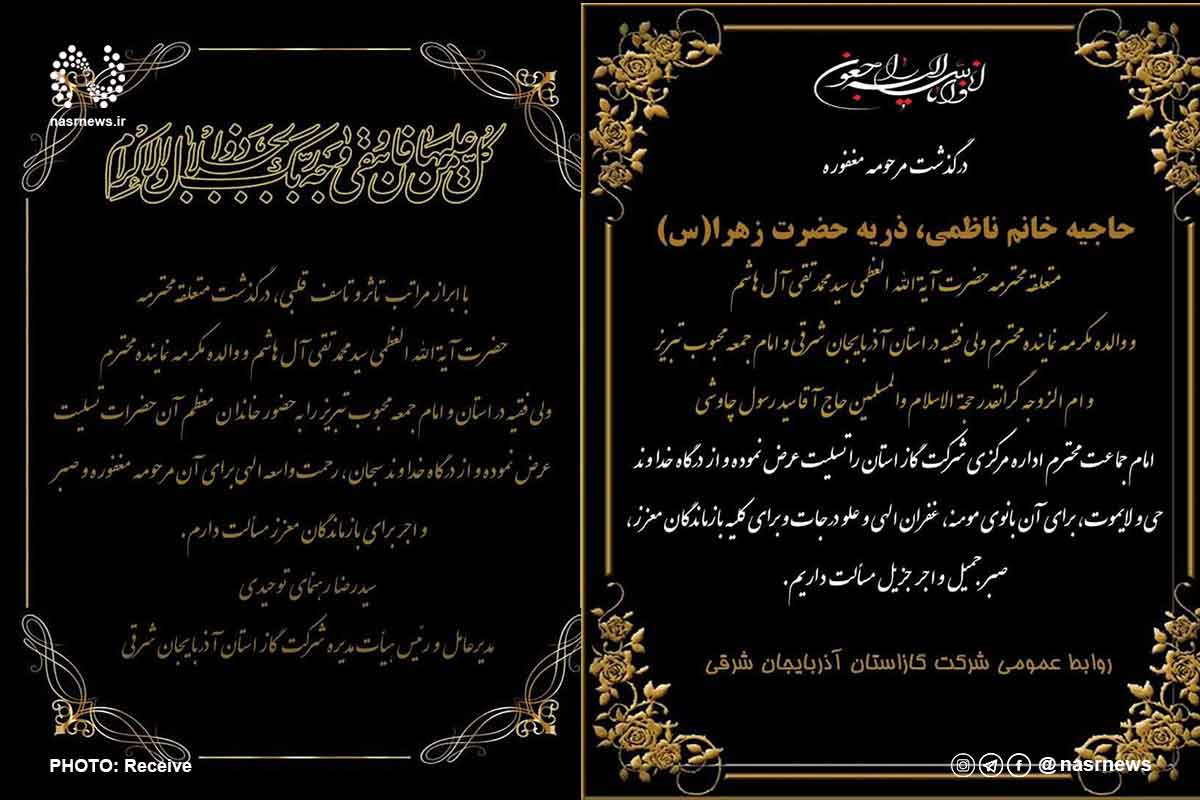 انا لله و انا الیه راجعون
درگذشت مرحومه مغفوره
حاجیه خانم ناظمی، ذریه حضرت زهرا(س)
متعلقه محترمه حضرت آیة الله العظمی سید محمد تقی آل هاشم
و والده مکرمه نماینده محترم ولی فقیه در استان آذربایجان شرقی و امام جمعه محبوب تبریز
و ام الزوجه گرانقدر حجة الاسلام والمسلمین حاج آقا سید رسول چاوشی
امام جماعت محترم اداره مرکزی شرکت گاز استان را تسلیت عرض نموده و از درگاه خداوند
حی و لایموت، برای آن بانوی مومنه، غفران الهی و علو درجات و برای کلیه بازماندگان معزز،
صبر جمیل و اجر جزیل مسألت داریم.
روابط عمومی شرکت گازاستان آذربایجان شرقی
@nasrnews
nasrnews.ir
کل من علیها فان و یبقی وجه ربک ذو الجلال و الاکرام
با ابراز مراتب تاثر و تاسف قلبی، درگذشت متعلقه محترمه
حضرت آیة الله العظمی سید محمد تقی آل هاشم و والده مکرمه نماینده محترم
ولی فقیه در استان و امام جمعه محبوب تبریز را به حضور خاندان معظم آن حضرات تسلیت
عرض نموده و از درگاه خداوند سبحان، رحمت واسعه الهی برای آن مرحومه مغفوره و صبر
و اجر برای بازماندگان معزز مسألت دارم.
سید رضا رهنمای توحیدی
مدیرعامل و رئیس هیأت مدیره شرکت گاز استان آذربایجان شرقی
PHOTO: Receive